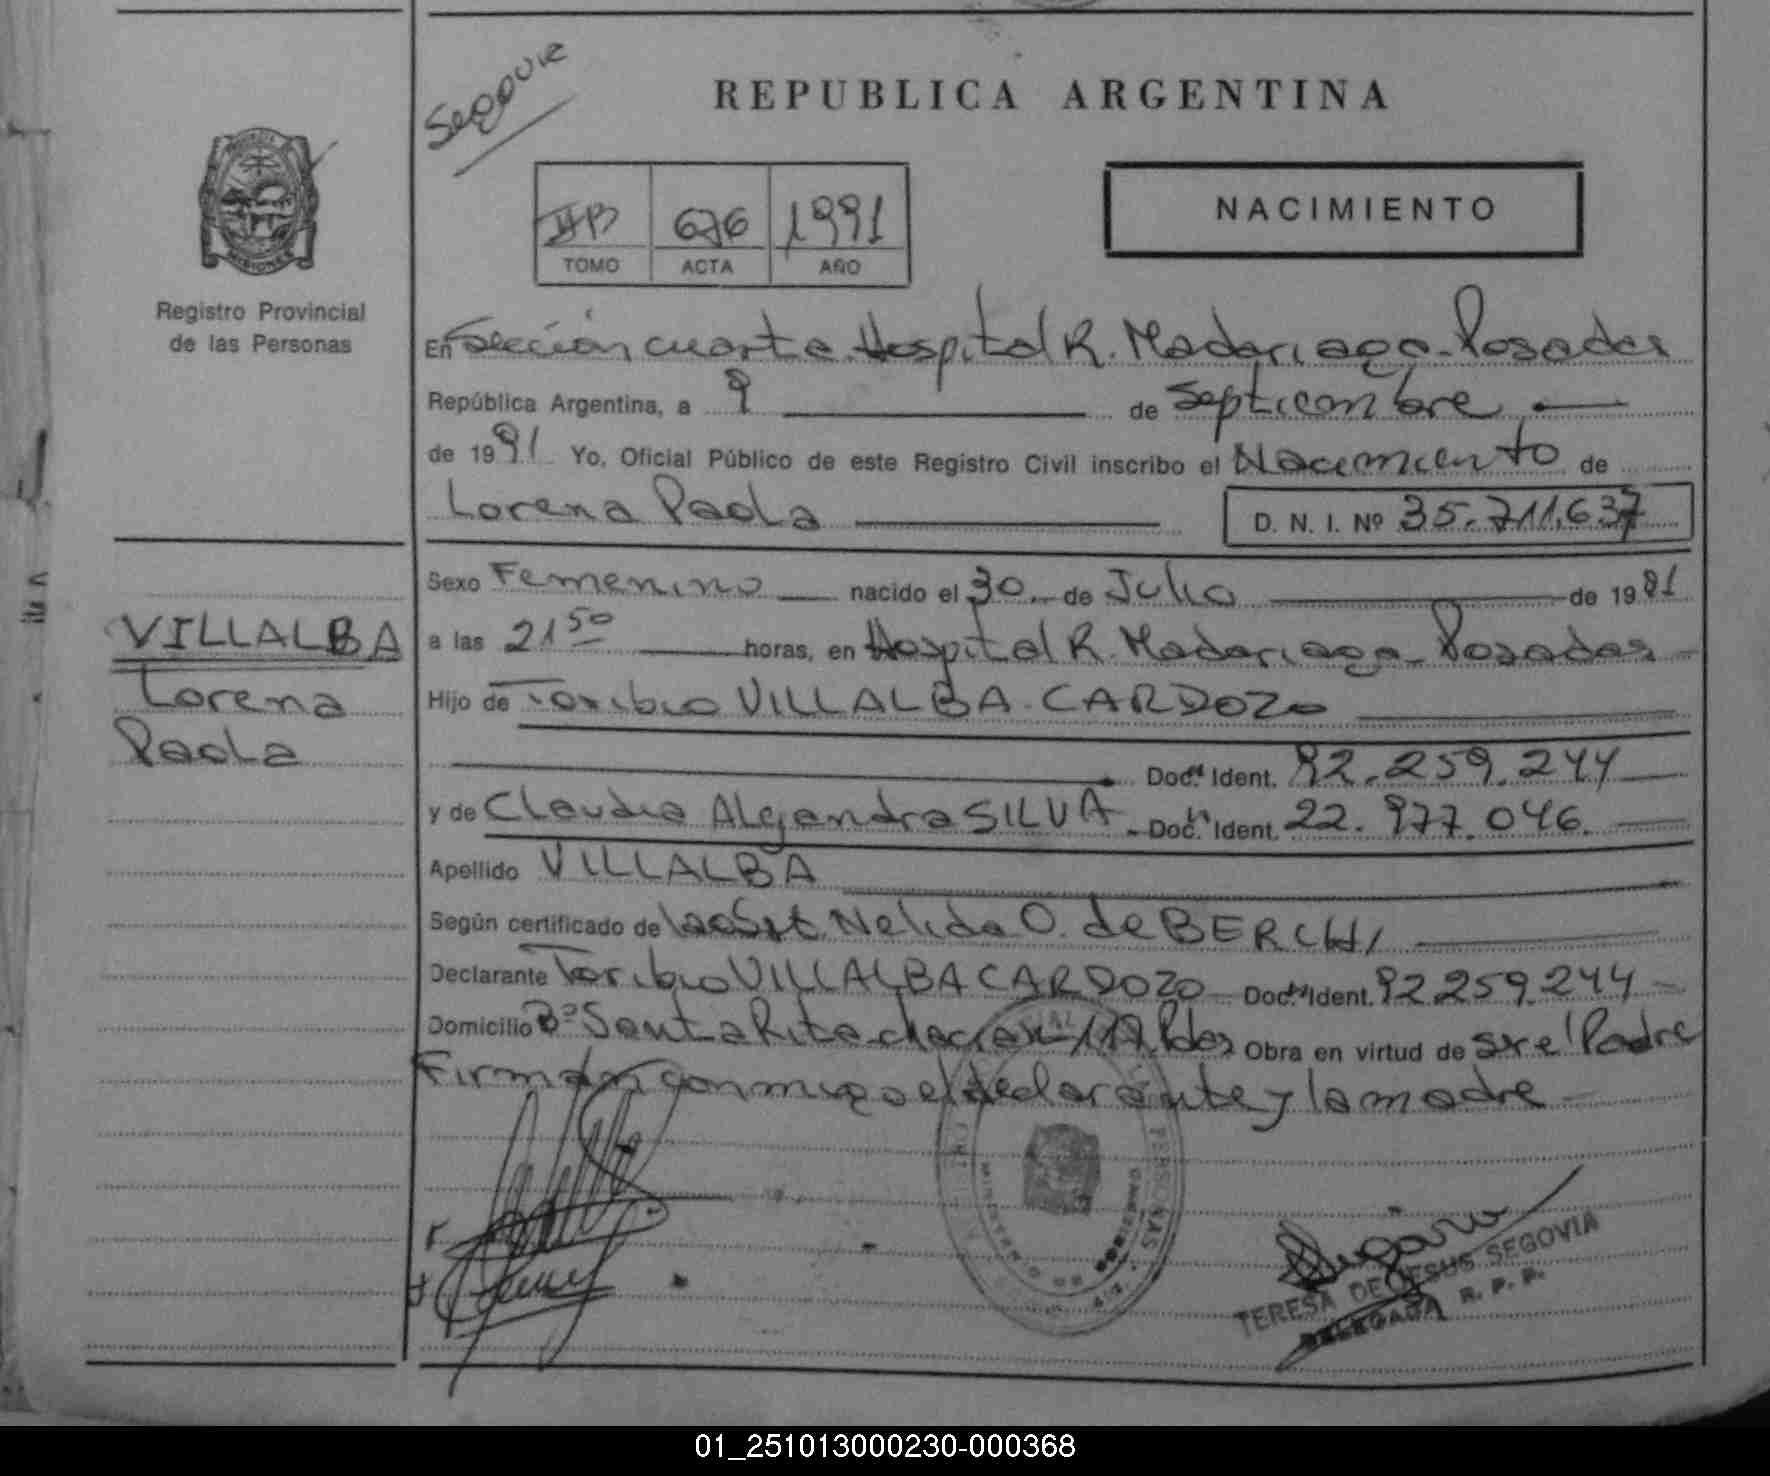 Segovia
REPUBLICA ARGENTINA
MISIONES
Registro Provincial
de las Personas
VILLALBA
Lorena
Paola
676 1991
TOMO ACTA AÑO
NACIMIENTO
En Sección cuarta Hospital R. Madariaga-Posadas
República Argentina, a 9 de Septiembre
de 1991 Yo, Oficial Público de este Registro Civil inscribo el Nacimiento de
Lorena Paola D. N. I. Nº 35.711.637
Sexo Femenino nacido el 30 de Julio de 1991
a las 21 50 horas, en Hospital R. Madariaga-Posadas
Hijo de Toribio VILLALBA-CARDOZO
Doc. Ident. 92.259.244
y de Claudia Alejandra SILVA Doc. Ident. 22.977.046.
Apellido VILLALBA
Según certificado de la Nelida O. de BERCHI
Declarante Toribio VILLALBA CARDOZO Doc. Ident. 92.259.244
Domicilio Bº Santa Rita Obra en virtud de el Padre
Firman conmigo el declarante y la madre
PERSONAS
TERESA DE JESUS SEGOVIA
DELEGADA R. P. P.
01_251013000230-000368